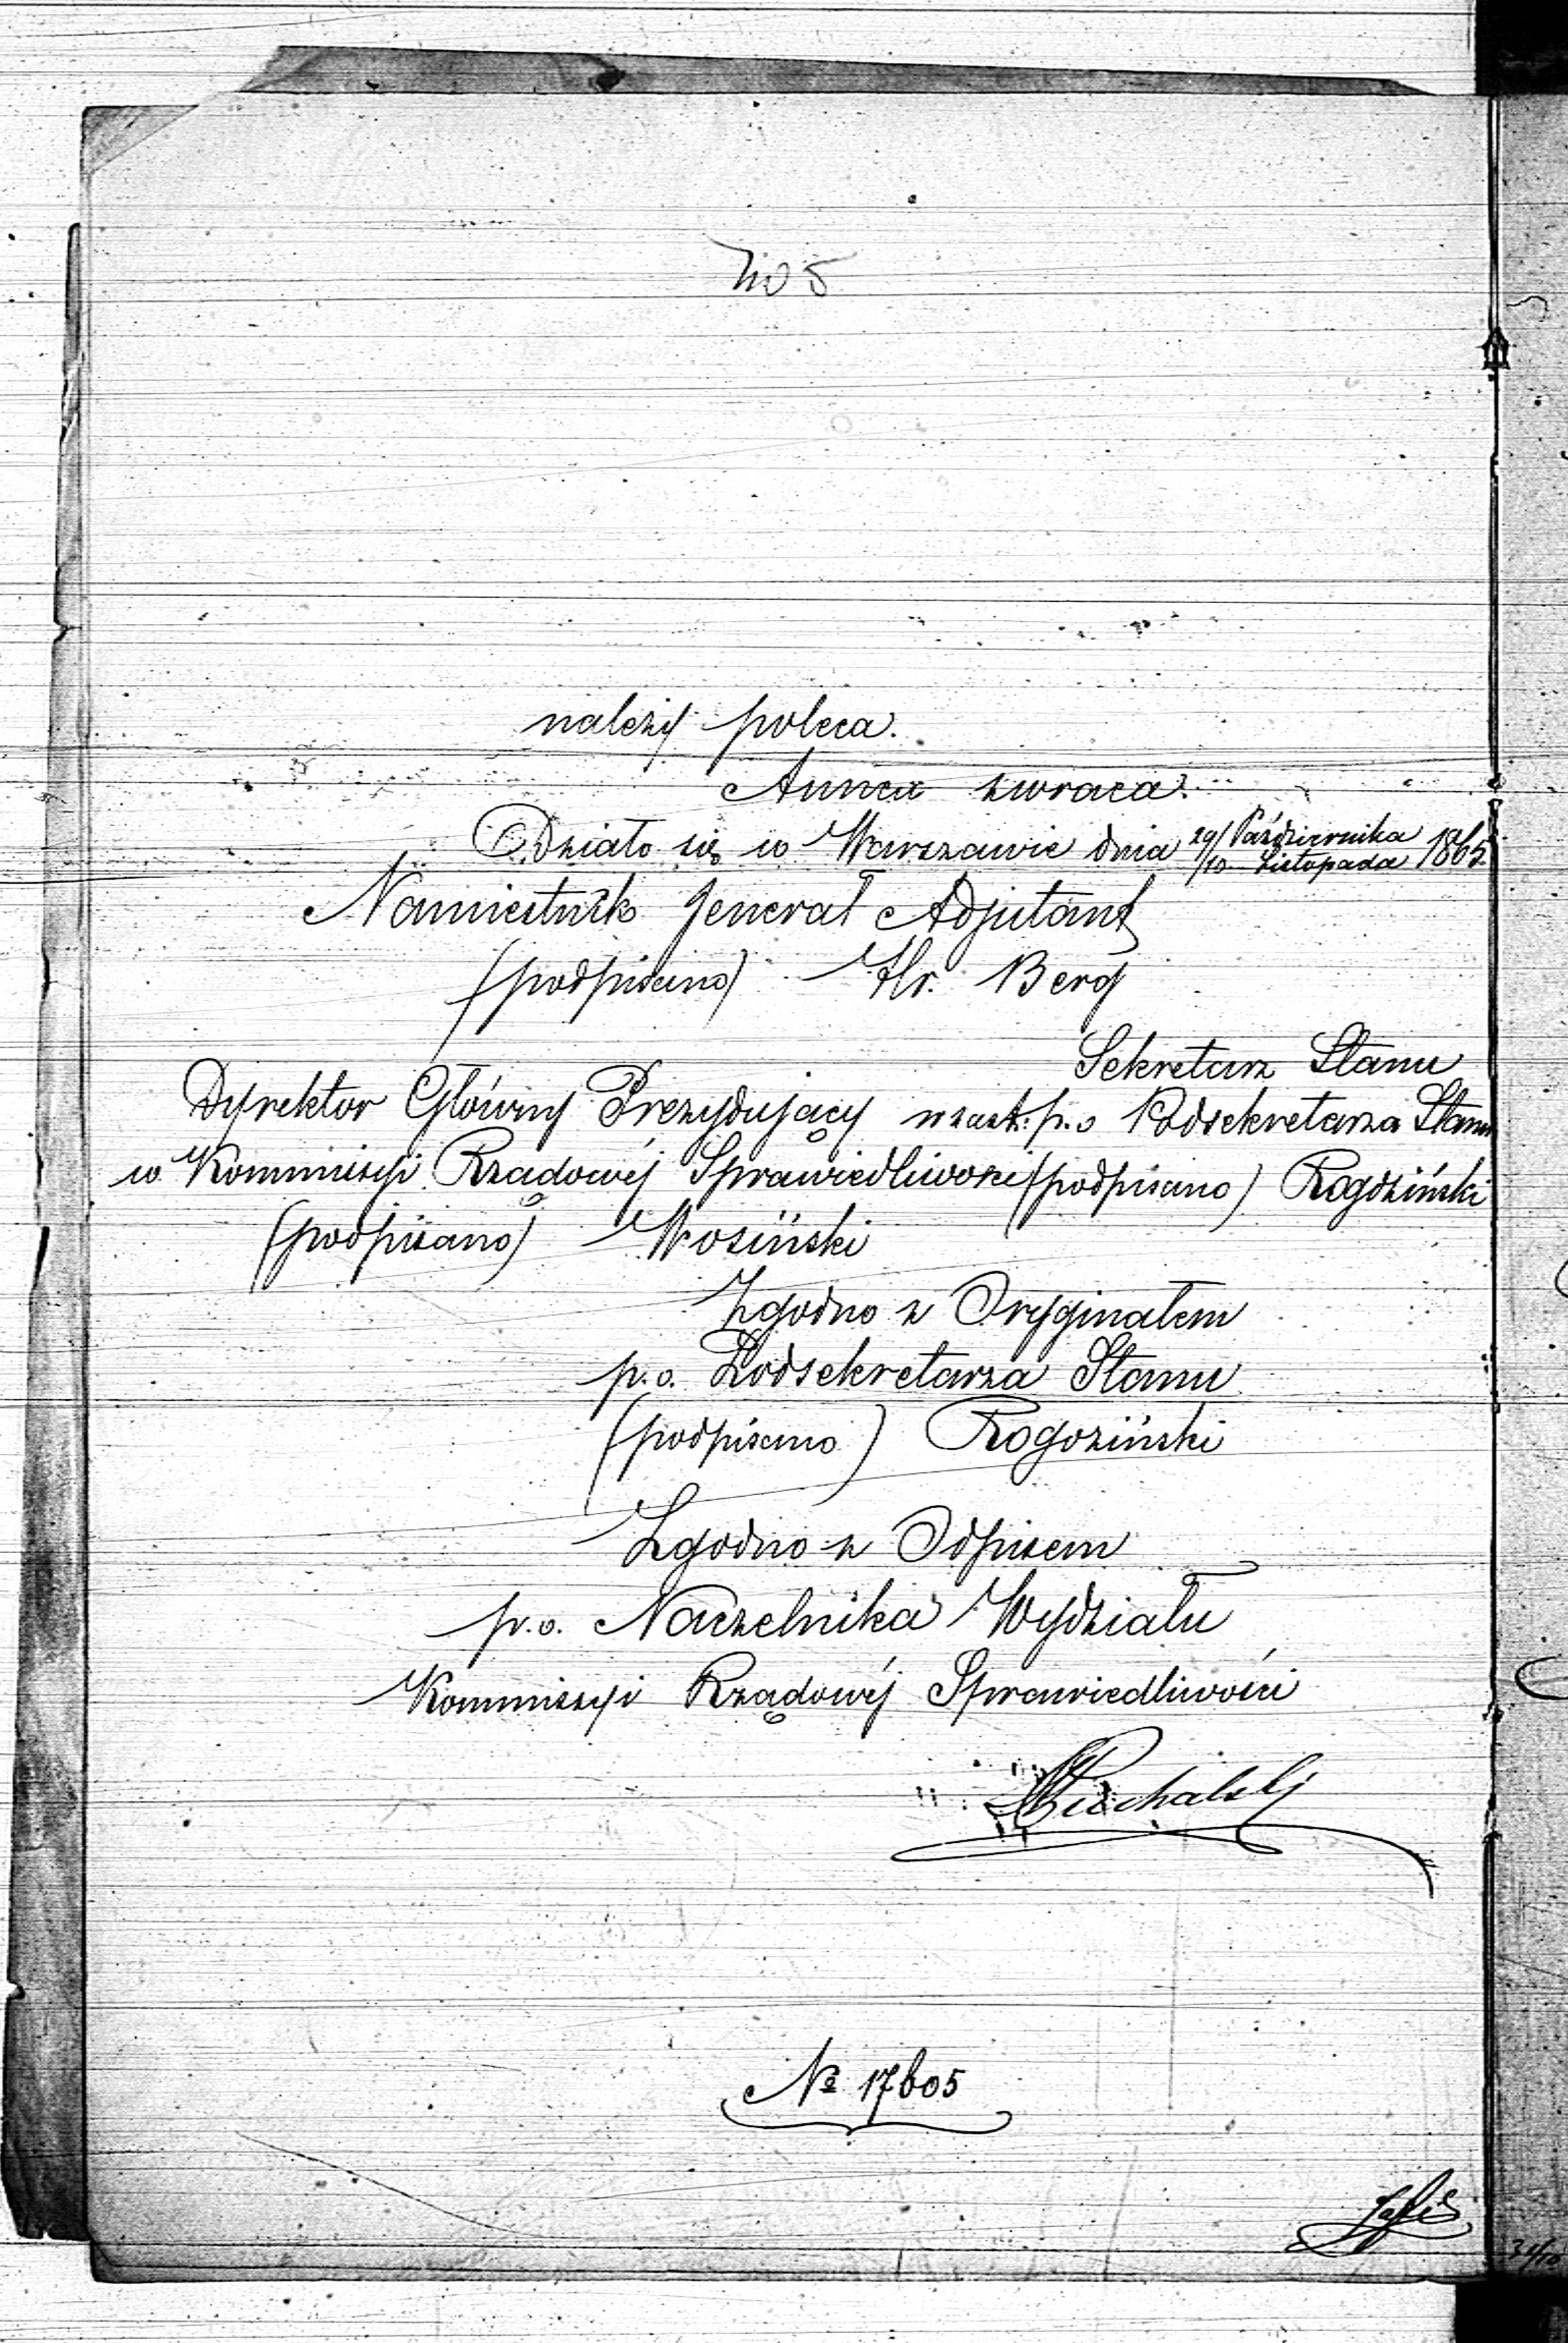 No 5
należy poleca.
Annex zwraca.
Działo się w Warszawie dnia 29/10 Października Listopada 1865.
Namiestnik Jenerał Adjutant
(podpisano) Hr. Berg
Sekretarz Stanu
Dyrektor Główny Prezydujący w zast: p.o Podsekretarza Stanu
w Kommissyi Rządowéj Sprawiedliwości (podpisano) Rogoziński
(podpisano) Wosiński
Zgodno z Oryginałem
p.o. Podsekretarza Stanu
(podpisano) Rogoziński
Zgodno z Odpisem
p.o. Naczelnika Wydziału
Kommissyi Rządowéj Sprawiedliwości
Puchalski
№ 17605